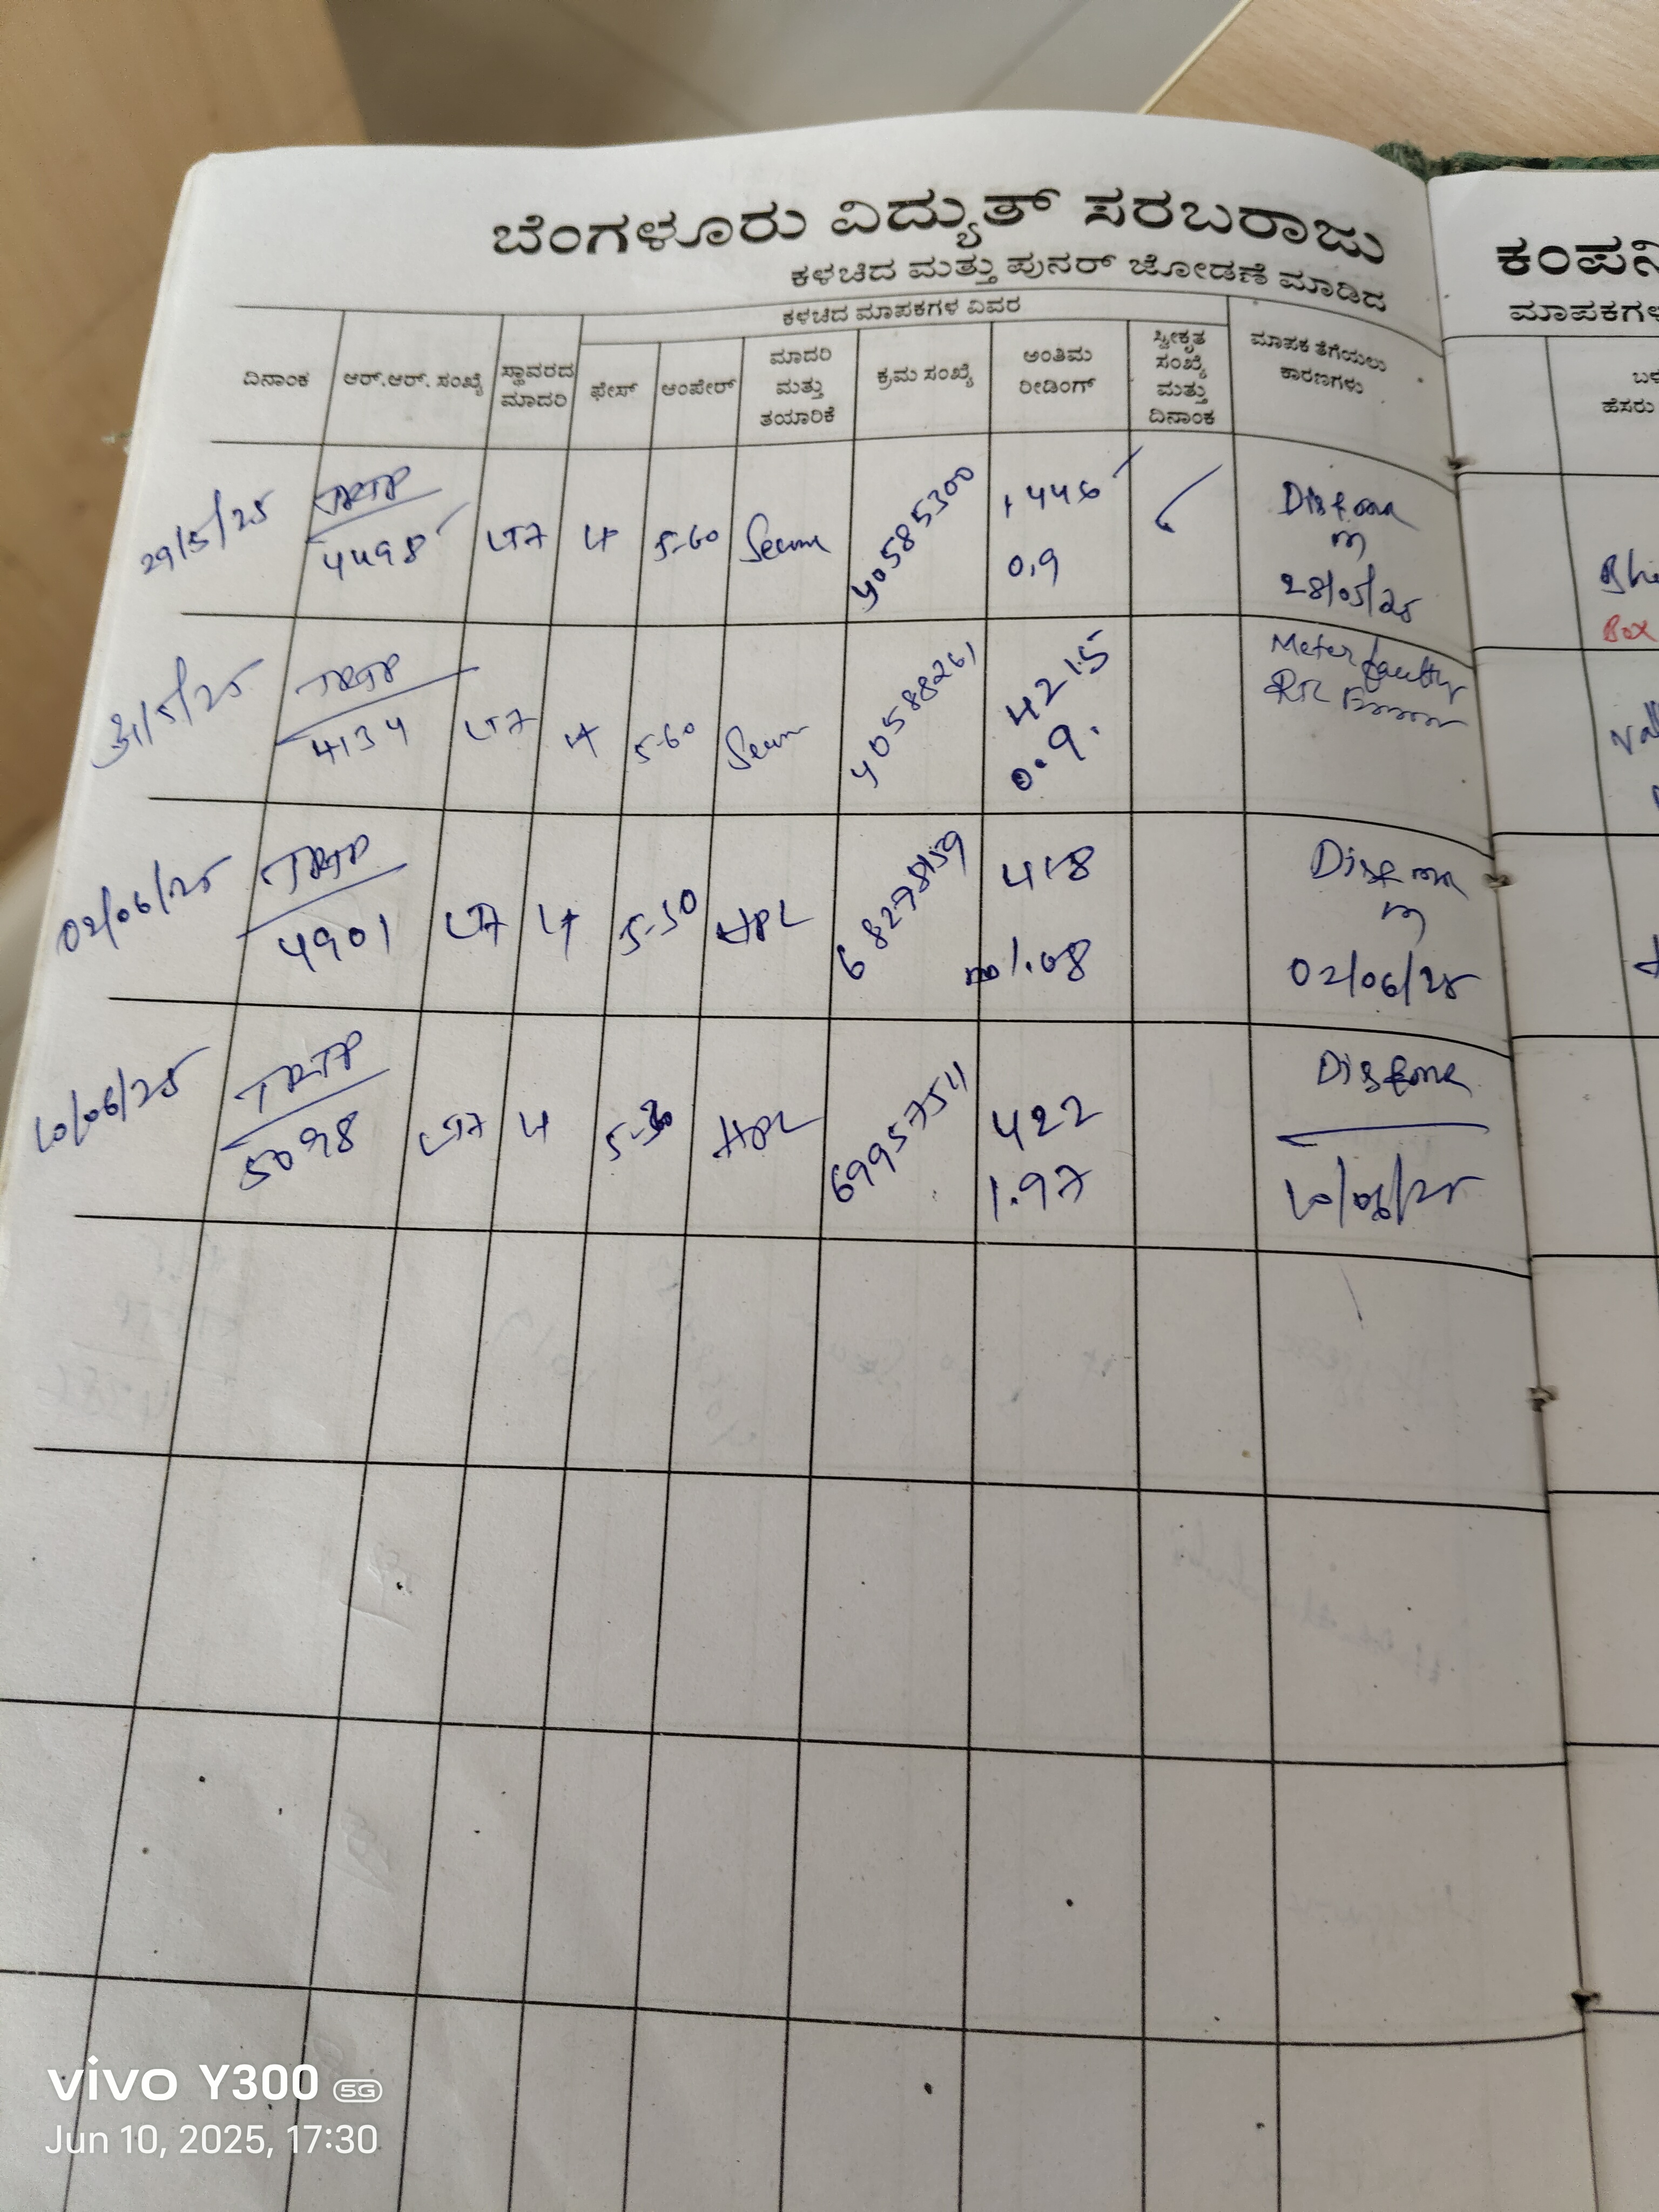 ಬೆಂಗಳೂರು ವಿದ್ಯುತ್ ಸರಬರಾಜು
ಕಂಪನಿ
ಕಳಚಿದ ಮತ್ತು ಪುನರ್ ಜೋಡಣೆ ಮಾಡಿದ
ಕಳಚಿದ ಮಾಪಕಗಳ ವಿವರ
ದಿನಾಂಕ
ಆರ್.ಆರ್. ಸಂಖ್ಯೆ
ಸ್ಥಾವರದ
ಮಾದರಿ
ಫೇಸ್
ಆಂಪೇರ್
ಮಾದರಿ
ಮತ್ತು
ತಯಾರಿಕೆ
ಕ್ರಮ ಸಂಖ್ಯೆ
ಅಂತಿಮ
ರೀಡಿಂಗ್
ಸ್ವೀಕೃತ
ಸಂಖ್ಯೆ
ಮತ್ತು
ದಿನಾಂಕ
ಮಾಪಕ ತೆಗೆಯಲು
ಕಾರಣಗಳು
ಹೆಸರು
29/5/25
TRTP
4498
LT7
5-60
Secure
40585300
1446
0.9
28/05/25
31/5/25
TRTP
4134
LT7
5-60
Secure
40588261
4215
0.9.
Meter faulty
02/06/25
TRTP
4901
LT7
5-30
HPL
418
1.08
02/06/25
10/06/25
TRTP
5098
LT7
5-30
HPL
69957511
422
1.97
10/06/25
Box
vivo Y300 5G
Jun 10, 2025, 17:30